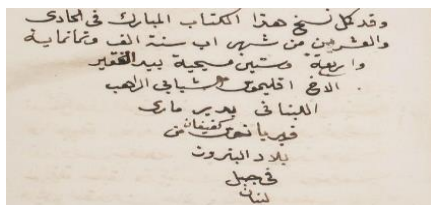 وقد كمل نسخ هذا الكتاب المبارك في الحادي
والعشرين من شهر اب سنة الف وثمانماية
واربعة وستين مسيحية بيد الفقير
الاخ اقليموس الشباني الراهب
اللبناني بدير ماري
قبريانوس كفيفان من
بلاد البترون
في جبل
لبنان